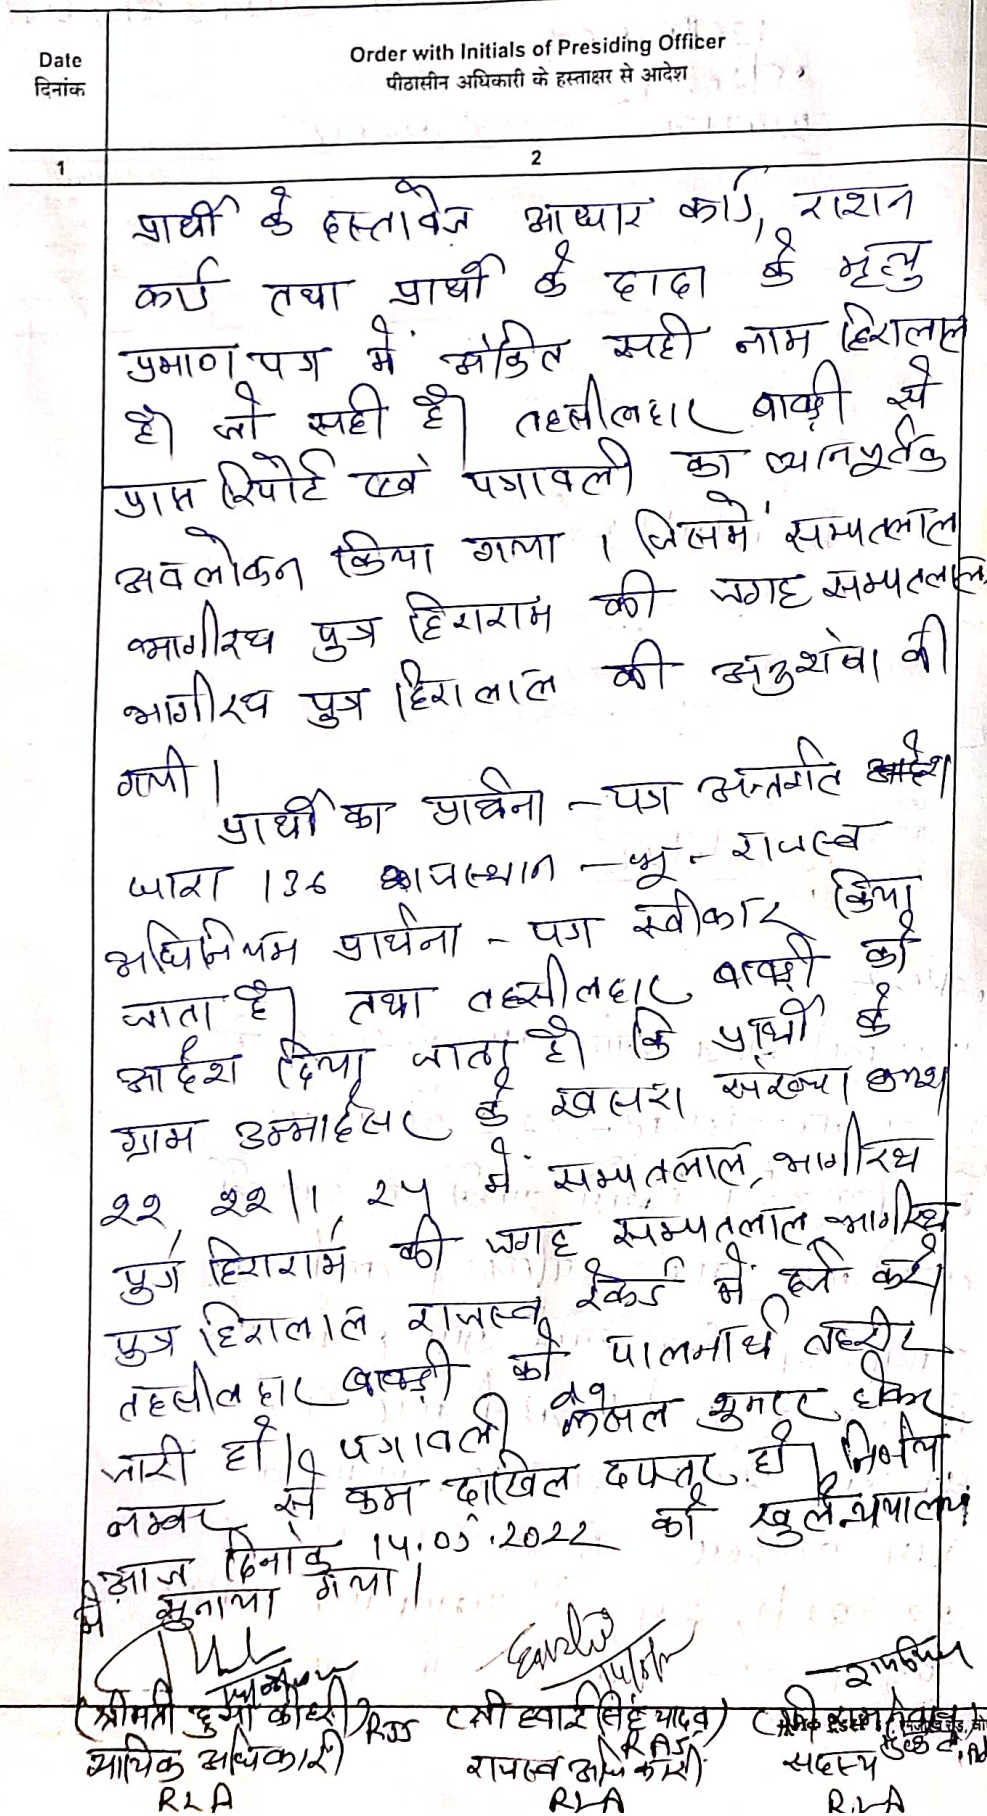 Date
दिनांक
Order with Initials of Presiding Officer
पीठासीन अधिकारी के हस्ताक्षर से आदेश
1
2
प्रार्थी के दस्तावेज आधार कार्ड, राशन
कार्ड तथा प्रार्थी के दादा के मृत्यु
प्रमाण पत्र में अंकित सही नाम हिरालाल
है। जो सही है। तहसीलदार बावड़ी से
प्राप्त रिपोर्ट एवं पत्रावली का ध्यानपूर्वक
अवलोकन किया गया। जिसमें सम्पतलाल
भागीरथ पुत्र हिराराम की जगह सम्पतलाल,
भागीरथ पुत्र हिरालाल की अनुशंषा की
गयी।
प्रार्थी का प्रार्थना-पत्र अन्तर्गत
धारा 136 राजस्थान-भू-राजस्व
अधिनियम प्रार्थना-पत्र स्वीकार किया
जाता है। तथा तहसीलदार बावड़ी को
आदेश दिया जाता है। कि प्रार्थी के
ग्राम उम्मादेसर के खसरा संख्या क्रमश
22, 22/1, 24 में सम्पतलाल, भागीरथ
पुत्र हिराराम की जगह सम्पतलाल, भागीरथ
पुत्र हिरालाल राजस्व रेकर्ड में दर्ज करे।
तहसीलदार बावड़ी को पालनार्थ तहरीर
जारी हो। पत्रावली फैसल शुमार होकर
नम्बर से कम दाखिल दफ्तर हो। निर्णय
आज दिनांक 14.05.2022 को खुले न्यायालय
में सुनाया गया।
(श्रीमती चौधरी) RJS
(श्री हवारसिंह यादव) RAS
न्यायिक अधिकारी
राजस्व अधिकारी
सदस्य
RLA
RLA
RLA